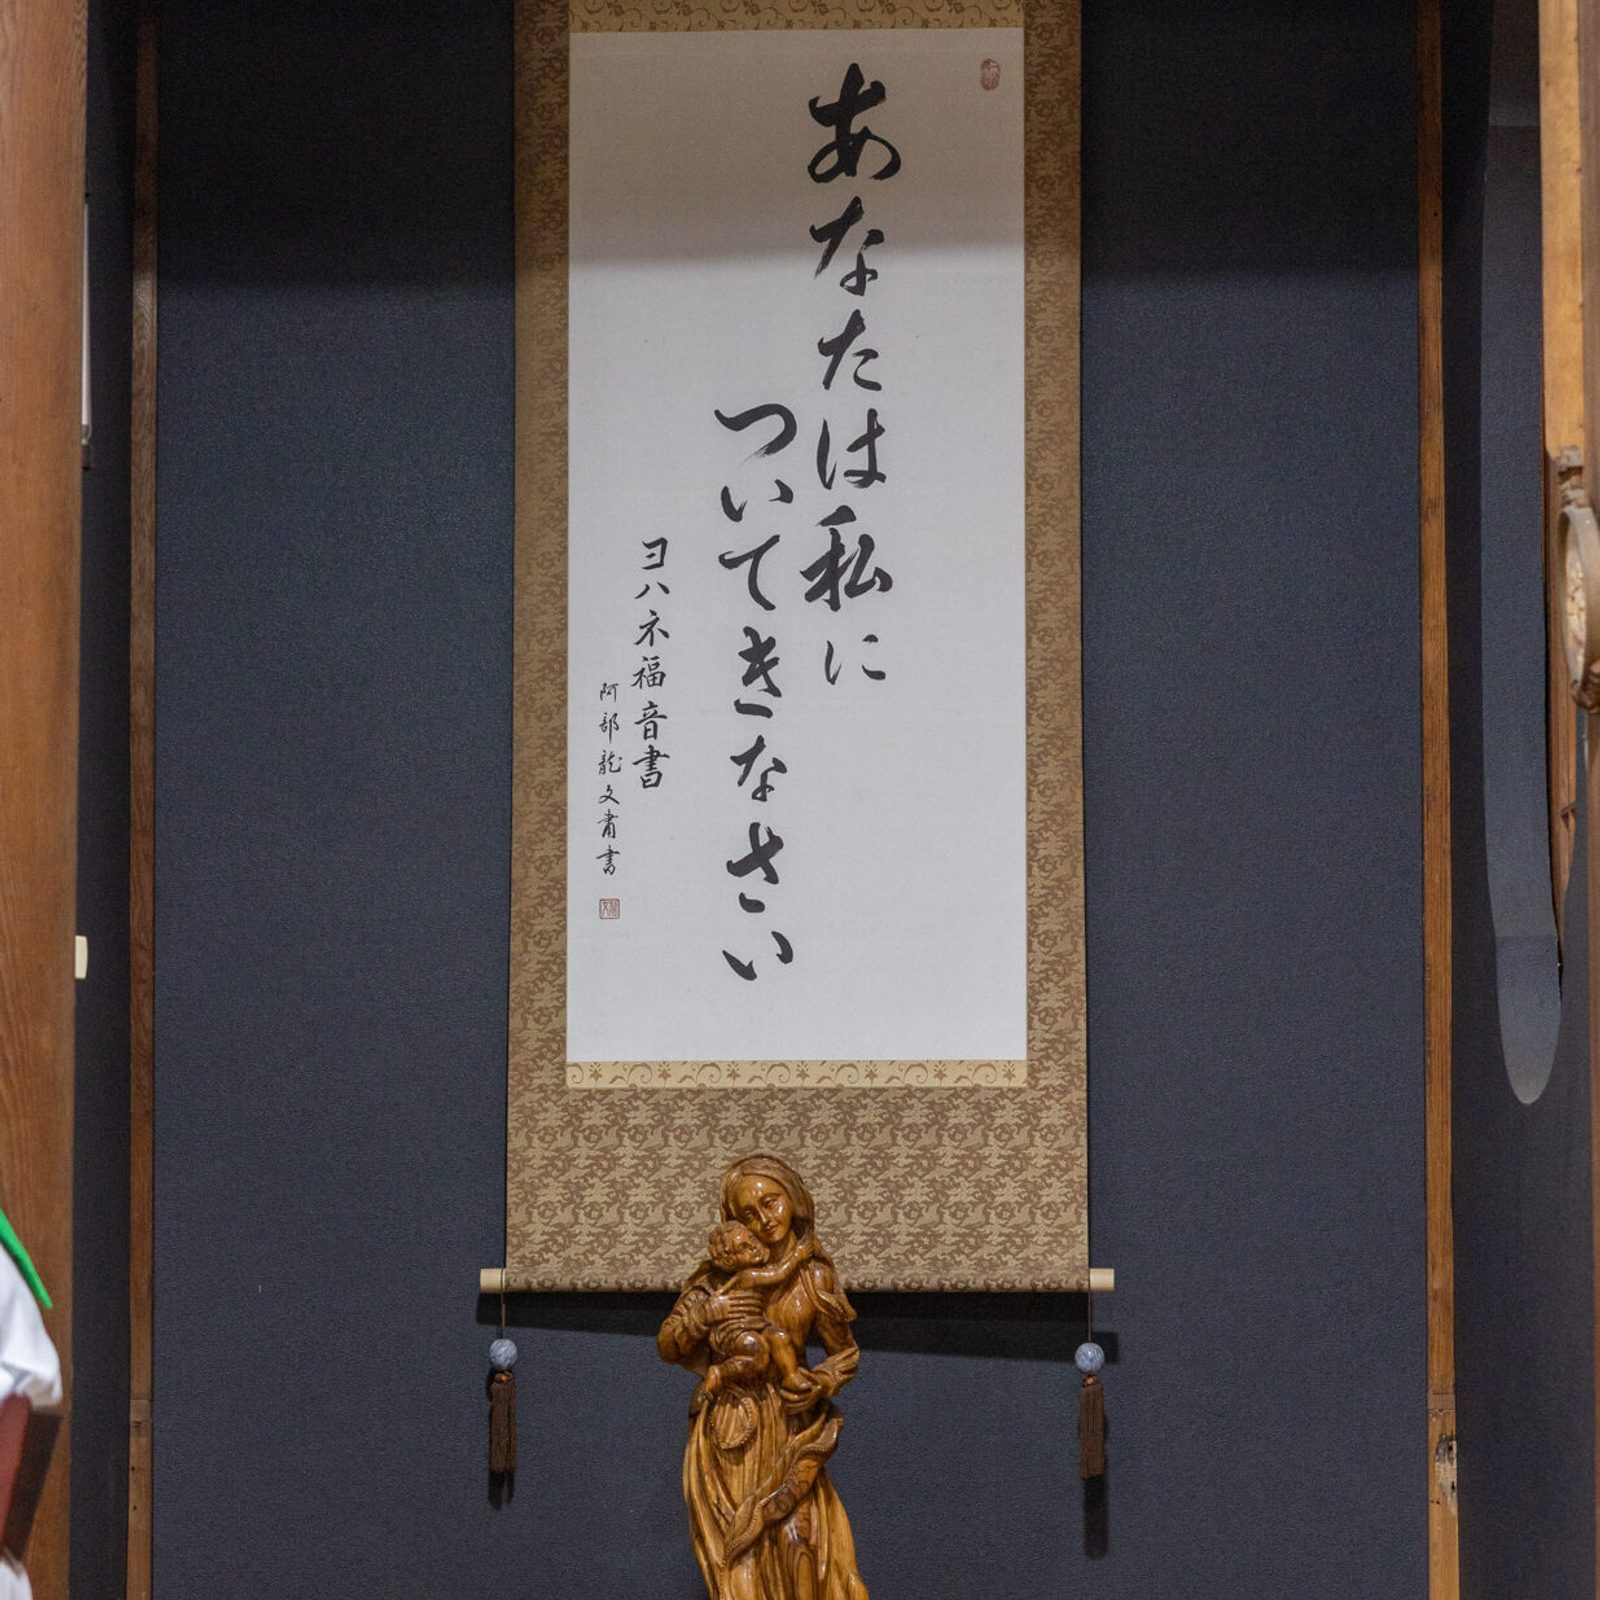 あなたは私に
ついてきなさい
ヨハネ福音書
阿部龍文書